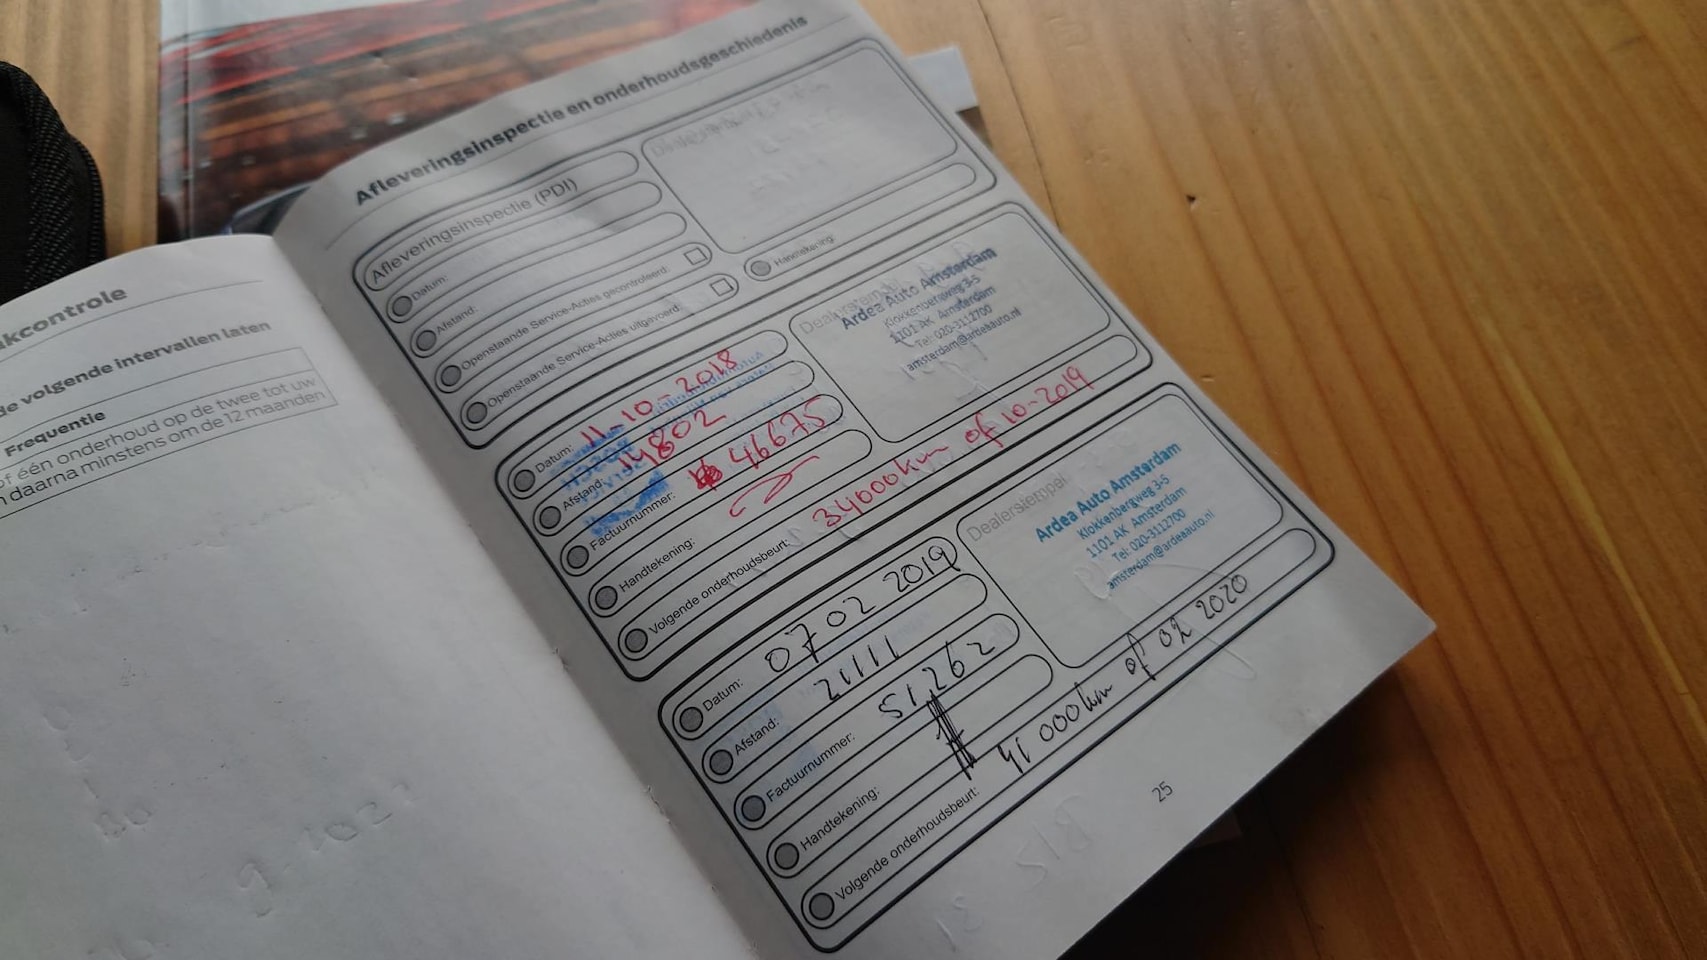 kcontrole
de volgende intervallen laten
Frequentie
of één onderhoud op de twee tot uw
n daarna minstens om de 12 maanden
Afleveringsinspectie en onderhoudsgeschiedenis
Afleveringsinspectie (PDI)
Datum:
Afstand:
Openstaande Service-Acties gecontroleerd:
Openstaande Service-Acties uitgevoerd:
Handtekening:
Datum: 11-10-2018
Afstand: 14802
Factuurnummer: 46675
Handtekening:
Volgende onderhoudsbeurt: 34000km of 10-2019
Dealerstempel
Ardea Auto Amsterdam
Klokkenbergweg 3-5
1101 AK Amsterdam
Tel: 020-3112700
amsterdam@ardeaauto.nl
Datum: 07 02 2019
Afstand: 21111
Factuurnummer: 51262
Handtekening:
Volgende onderhoudsbeurt: 41 000km of 02 2020
Dealerstempel
Ardea Auto Amsterdam
Klokkenbergweg 3-5
1101 AK Amsterdam
Tel: 020-3112700
amsterdam@ardeaauto.nl
25